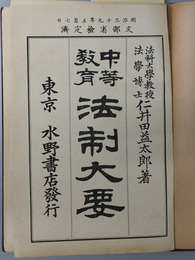 明治三十九年五月七日
文部省檢定濟
法科大學教授
法學博士
仁井田益太郎著
中等
教育
法制大要
東京 水野書店發行